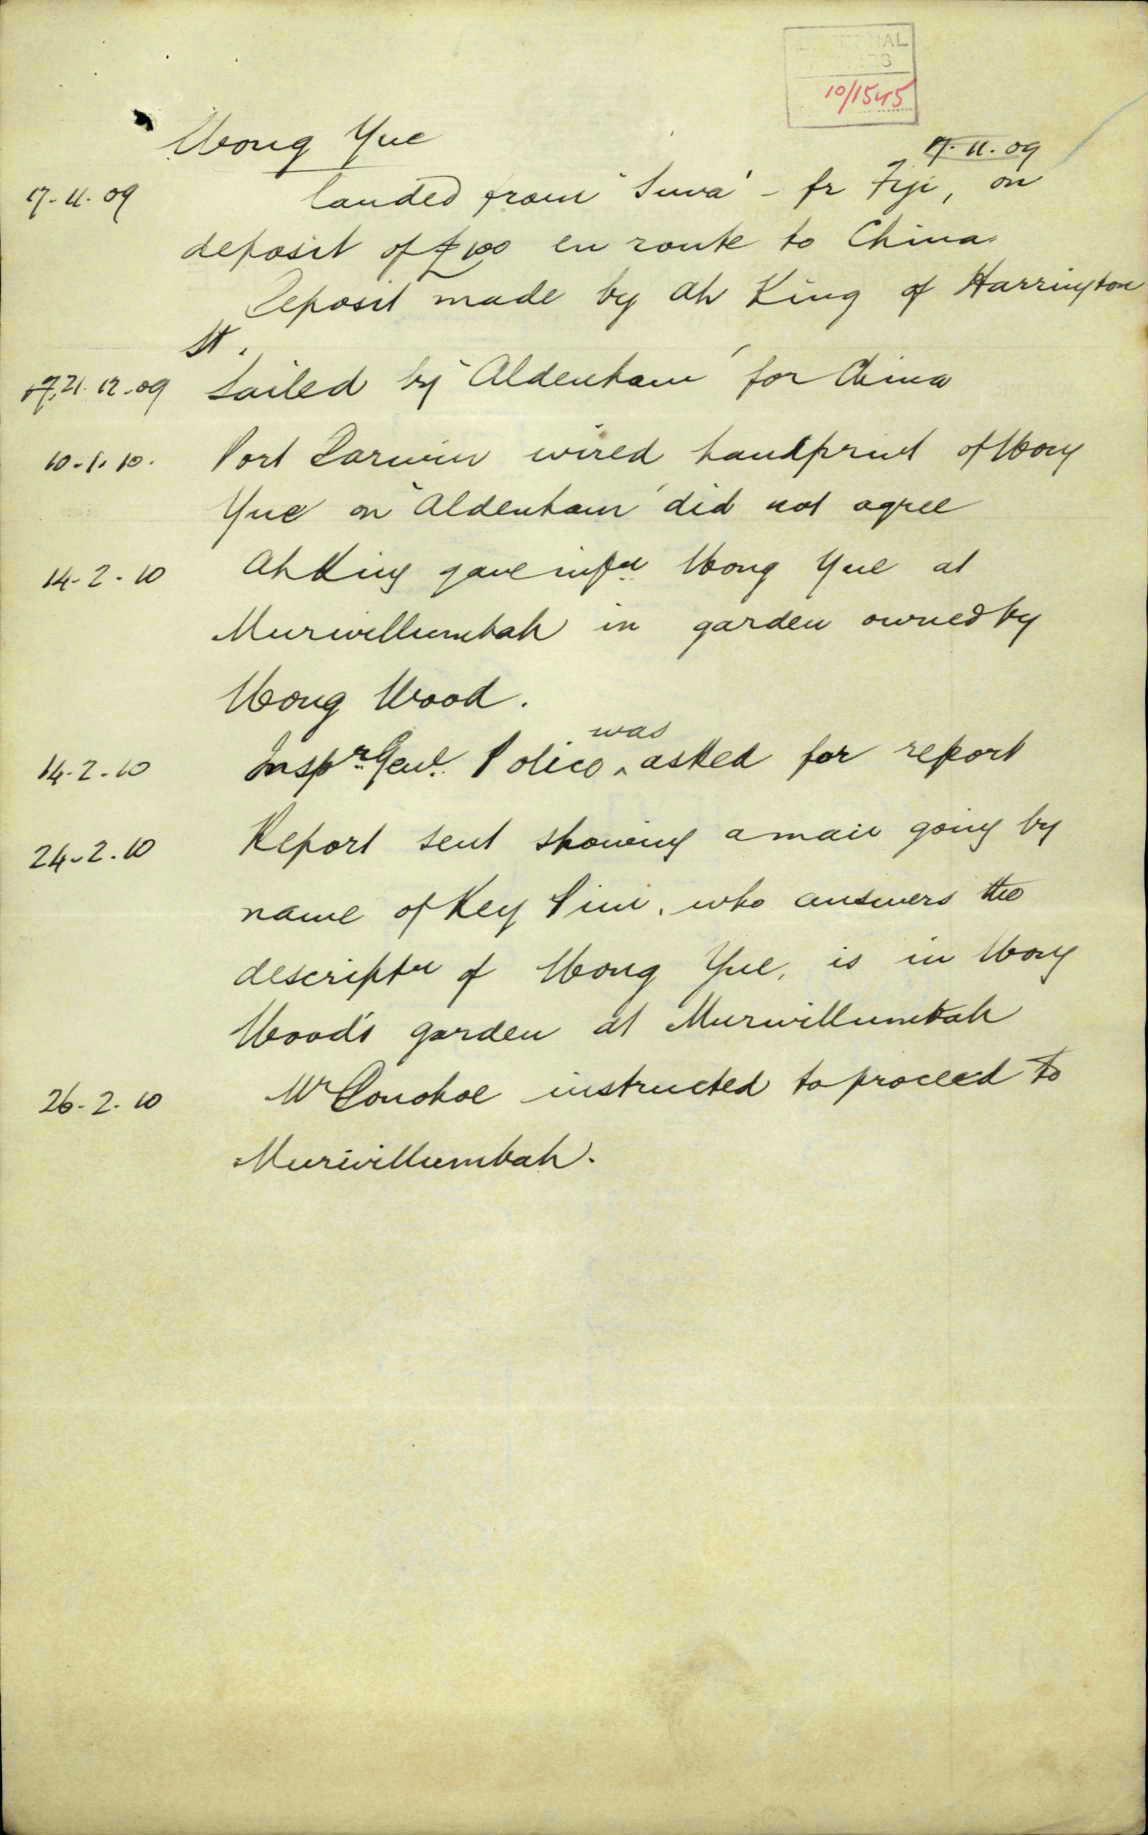 10/1545
Wong Yue
17.11.09
17-11-09 landed from "Suva" - fr Fiji, on
deposit of £100 en route to China.
Deposit made by Ah King of Harrington
St.
21.12.09 Sailed by "Aldenham" for China
10.1.10. Port Darwin wired handprint of Wong
Yue on "Aldenham" did not agree
14-2-10 Ah King gave infn Wong Yue at
Murwillumbah in garden owned by
Wong Wood.
14-2-10 Inspr. Genl. Police was asked for report
24-2.10 Report sent showing a man going by
name of Key Pim, who answers the
descriptn of Wong Yue, is in Wong
Wood's garden at Murwillumbah
26-2.10 Mr Donohoe instructed to proceed to
Murwillumbah.